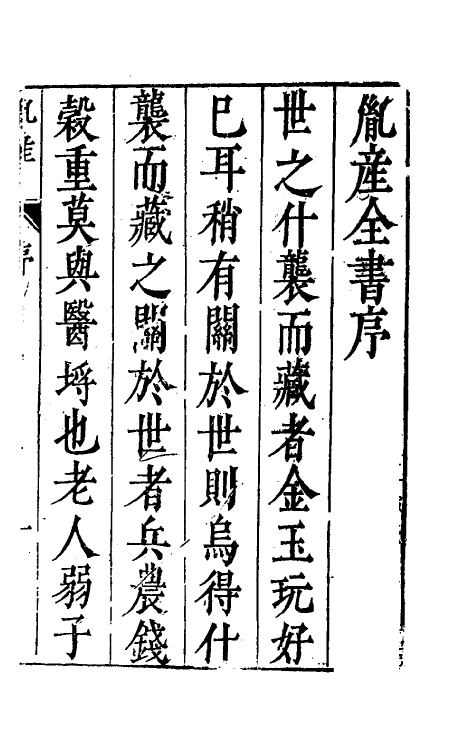 胤産全書序
世之什襲而藏者金玉玩好
已耳稍有關於世則烏得什
襲而藏之關於世者兵農錢
穀重莫與醫埒也老人弱子
胤産
序
一